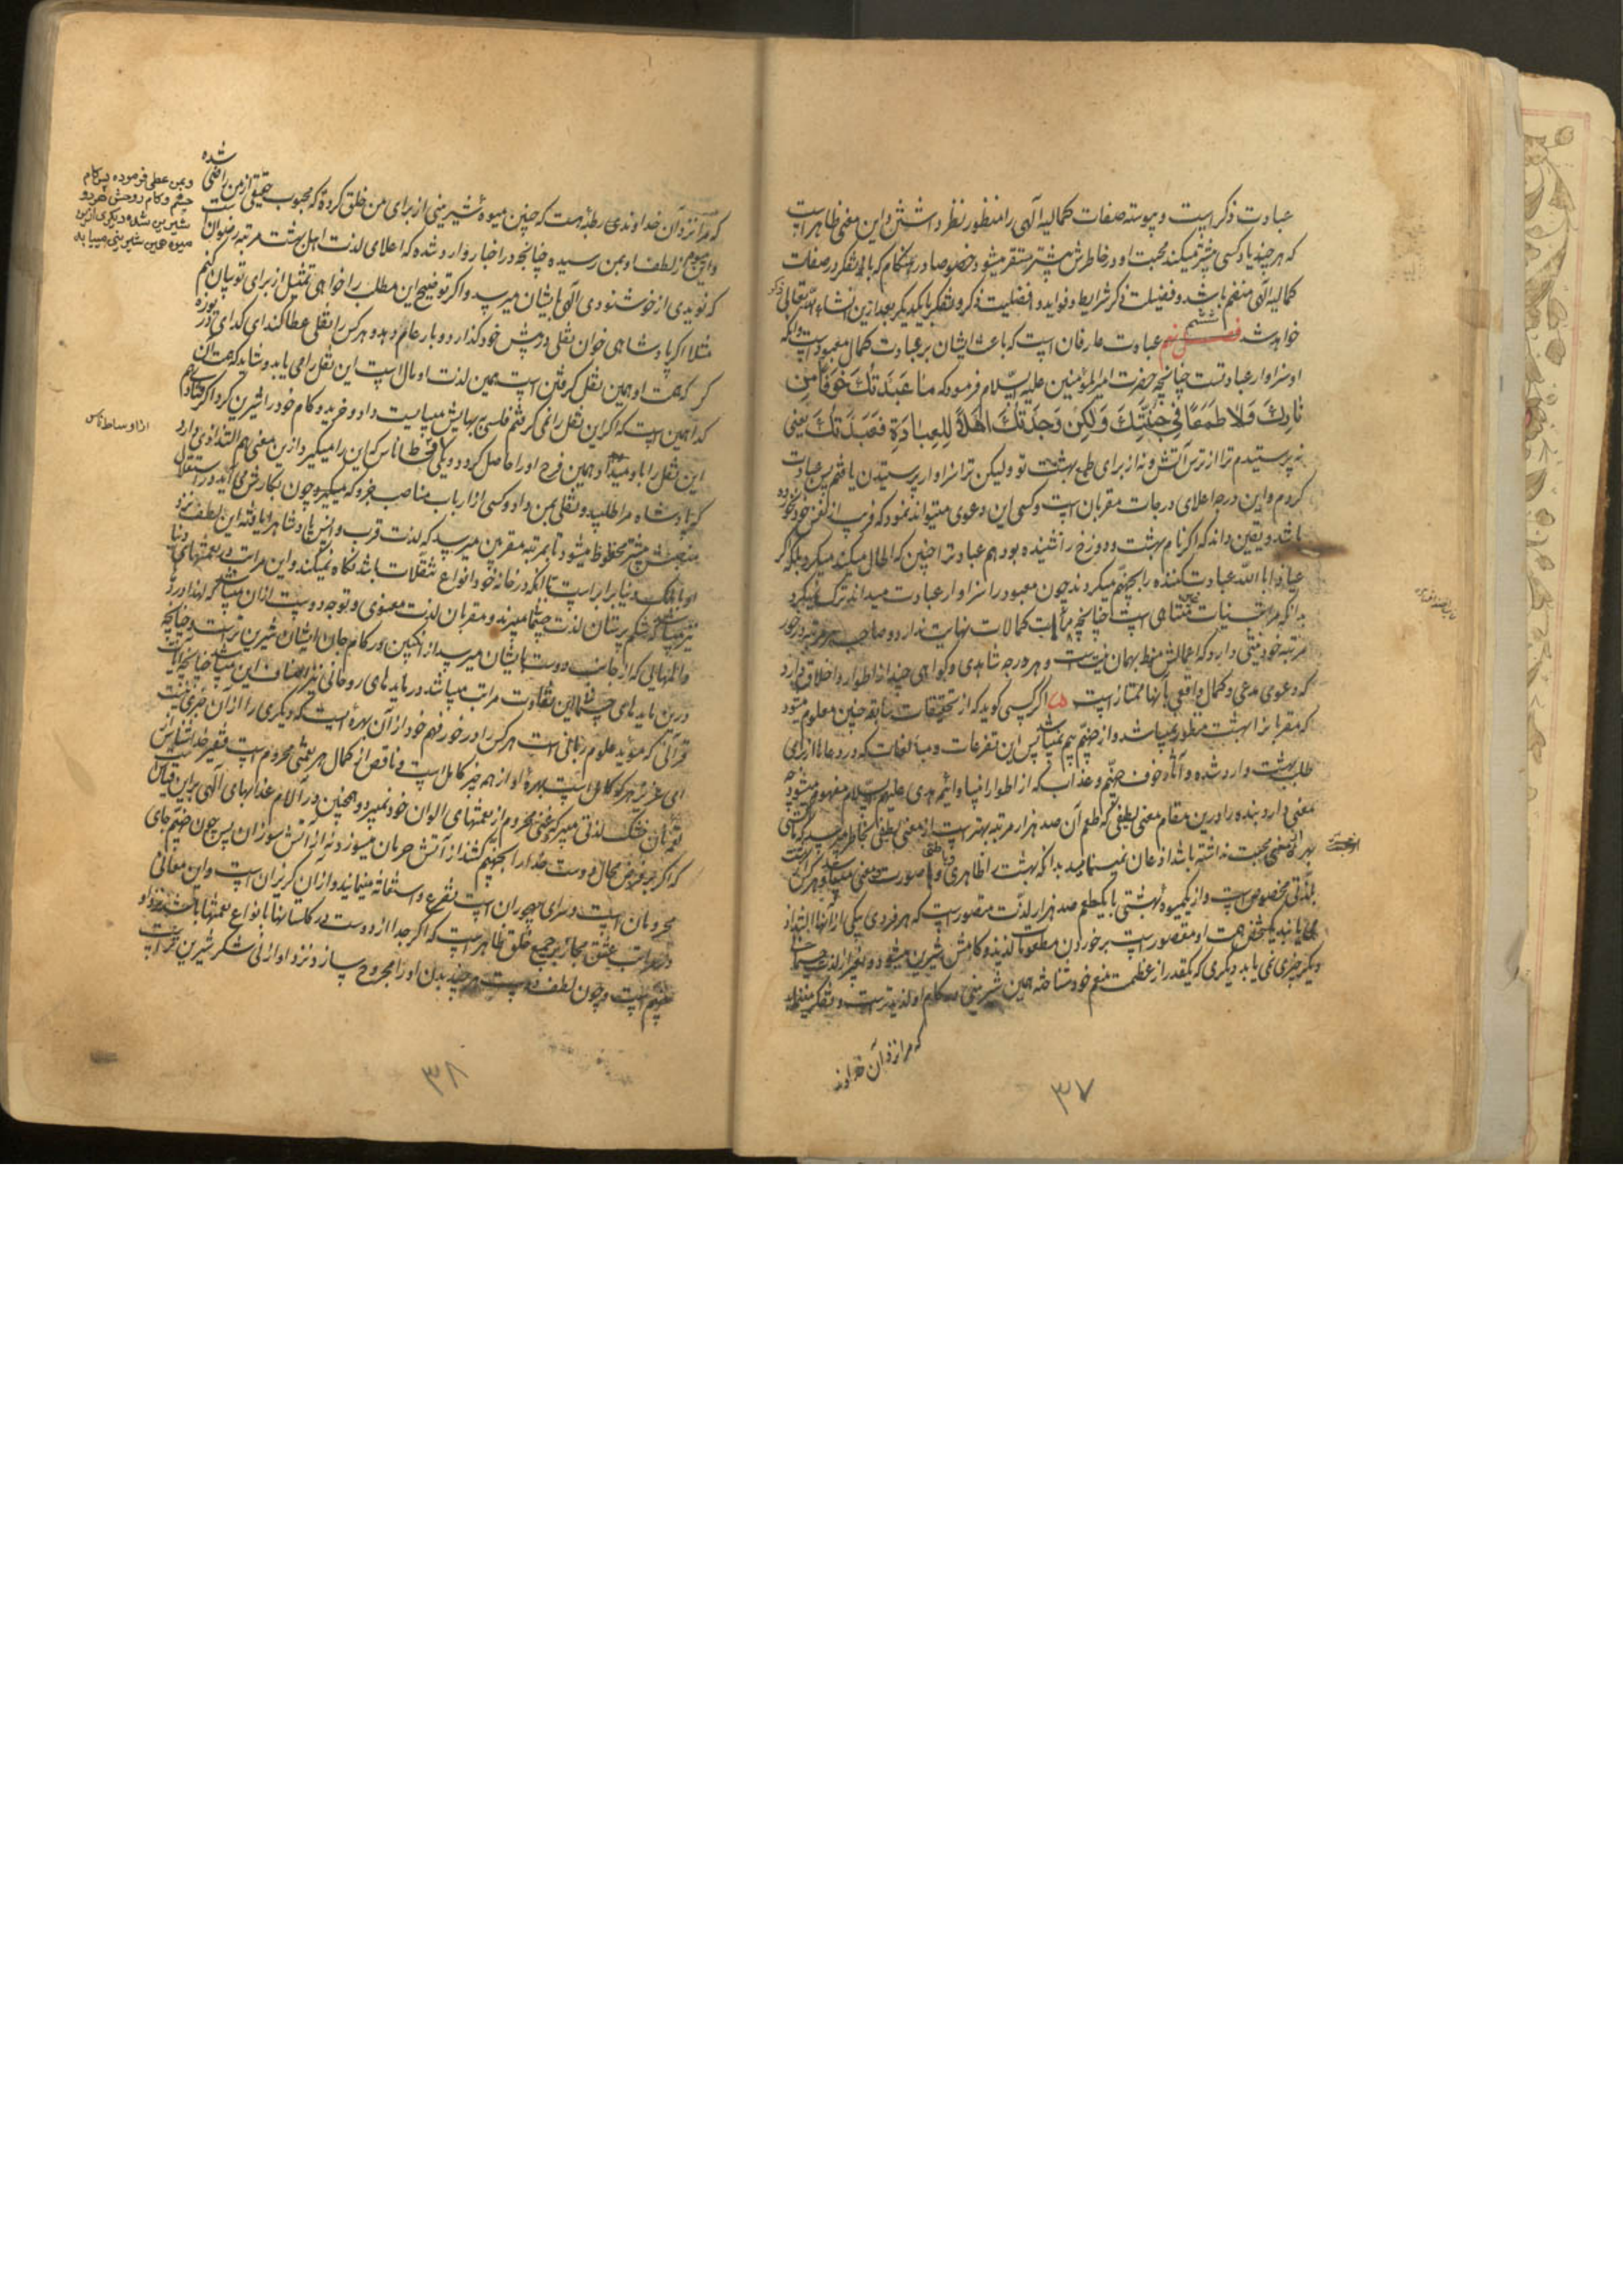 عبادت ذکر است و پیوسته صفات کمالیه الهی را منظور نظر داشتن و این معنی ظاهر است
که هر چند یاد کسی بیشتر میکند محبت او در خاطرش بیشتر مستقر میشود خصوصا در هنگام که با تفکر در صفات
کمالیه الهی منضم باشد و فضیلت ذکر و شرایط و فواید و افضلیت ذکر و تفکر با یکدیگر بعد ازین انشاء الله تعالی ذکر
خواهد شد فصل ششم عبادت عارفان است که باعث ایشان بر عبادت کمال معبود است و آنکه
او سزاوار عبادتست چنانچه حضرت امیر المؤمنین علیه السلام فرمود که ما عَبَدتُكَ خَوفًا مِن
نارِكَ وَلا طَمَعًا فی جَنَّتِكَ وَلكِن وَجَدتُكَ اَهلًا لِلعِبادَةِ فَعَبَدتُكَ یعنی
نه پرستیدم ترا از ترس آتش و نه از برای طمع بهشت تو ولیکن ترا سزاوار پرستیدن یافتم پس عبادت
کردم و این درجه اعلای درجات مقربان است و کسی این دعوی میتواند نمود که فریب از نفس خود نخورده
باشد و یقین داند که اگر نام بهشت و دوزخ را نشنیده بود هم عبادت را چنین که الحال میکند میکرد بلکه اگر
عیاذا بالله عبادت کننده را بجهنم میکردند چون معبود را سزاوار عبادت میداند ترک نمیکرد
بدانکه مراتب نیات غیر متناهی است چنانچه مراتب کمالات نهایت ندارد و صاحب هر مرتبه در خور
مرتبه خود نیتی دارد که اعمالش منوط بهمان نیت است و هر درجه شاهدی و گواهی چند از اطوار و اخلاق دارد
که دعوی مدعی و کمال واقعی بآنها ممتاز است اگر کسی گوید که از تحقیقات سابقه چنین معلوم میشود
که مقربان را بهشت منظور نمیباشد و از جهنم بیم نمیباشد پس این تضرعات و مبالغات که در دعاها از برای
طلب بهشت وارد شده و آثار خوف جهنم و عذاب که از اطوار انبیا و ائمه هدی علیهم السلام مفهوم میشود چه
معنی دارد بنده را درین مقام معنی لطیفی که طعم آن صد هزار مرتبه بهتر است از معنی لطیفی بخاطر میرسد که تا کسی
بهره از معنی محبت نداشته باشد اذعان نمینماید بدانکه بهشت را ظاهری و باطنی و صورت و معنی میباشد و هر کس
بلذتی مخصوص است و از یک میوه بهشتی با یک طعم صد هزار لذت متصور است که هر فردی یکی از آنها التذاذ
می یابند یک شخص همت او مقصور است بر خوردن مطعومات لذیذ و کامش شیرین میشود و بغیر از لذت جسمانی
دیگر چیزی نمی یابد دیگری که یکقدر از عظمت منعم خود شناخته همین شیرینی در کام او لذیذتر است و تفکر مینماید
که مرا نزد آن خداوند
۳۷
که مرا نزد آن خداوندی رابطه هست که چنین میوه شیرینی از برای من خلق کرده که محبوب حقیقی از من راضی شده
و این میوه از لطف او بمن رسیده چنانچه در اخبار وارد شده که اعلای لذت اهل بهشت مرتبه رضوان است
که نویدی از خوشنودی الهی بایشان میرسد و اگر توضیح این مطلب را خواهی تمثیلی از برای تو بیان کنم
مثلا اگر پادشاهی خوان نقلی در پیش خود گذارد و بار عام دهد و هر کس را نقلی عطا کند ای گدای دریوزه
گر که همت او همین نقل گرفتن است همین لذت او بالا است این نقل را می یابد و شاید که همت آن
گدا همین است که اگر این نقل را نمی گرفتم فلسی بهایش میبایست داد و خرید و کام خود را شیرین کرد
این نقل را باو میداد همین فرح او را حاصل کرد و دیگری از اوساط ناس که این را میگیرد ازین معنی هم التذاذی دارد
که پادشاه مرا طلبید و نقلی بمن داد و کسی از ارباب مناصب جزو که میگیرد چون بکارش می آید در استقلال
منصبش بیشتر محظوظ میشود تا بمرتبه مقربین میرسد که لذت قرب و انس پادشاه را یافته این لطف نزد
او با ملک دنیا برابر است تا آنکه در خانه خود انواع نقلات باشد نگاه نمیکند و این مراتب در نعمتهای دنیا
نیز میباشد که شکم پرستان لذت جسمانی میبرند و مقربان لذت معنوی و توجه دوست از آن میباشد
و المهایی که از جانب دوست بایشان میرسد از انگبین در کام جان ایشان شیرین تر است و چنانچه
درین مایده های جسمانی این تفاوت مراتب میباشد در مایده های روحانی نیز اصناف این میباشد چنانچه آیات
قرآنی که مؤید علوم ربانی است هر کس را در خور فهم خود از آن بهره ایست که دیگری را از آن خبری نیست
ای عزیز هر کو کامل است بهره او از همه چیز کامل است و ناقص از کمال هر نعمتی محروم است فقیر خداشناس
از نان خشک لذتی میبرد که غنی محروم از نعمتهای الوان خود نمیبرد و همچنین در آلام عذابهای الهی برین قیاس
که اگر بر فرض محال دوست خدا را بجهنم کشند از آتش حرمان میسوزد نه از آتش سوزان پس چون جهنم جای
محرومان است و سرای مهجوران است تضرع و استغاثه مینماید و از آن گریزان است و این معانی
در مراتب عشق مجاز بر جمیع خلق ظاهر است که اگر جدا از دوست در گلستانها با انواع نعمتها باشد نزد او
جهنم است و چون لطف دوست هر چند بدن او را مجروح سازد نزد او از نی شکر شیرین تر است
و بمن عطا فرموده پس کام
جسم و کام روحش هر دو
شیرین شده و دیگری ازین
میوه همین شیرینی مییابد
از اوساط ناس
۳۸